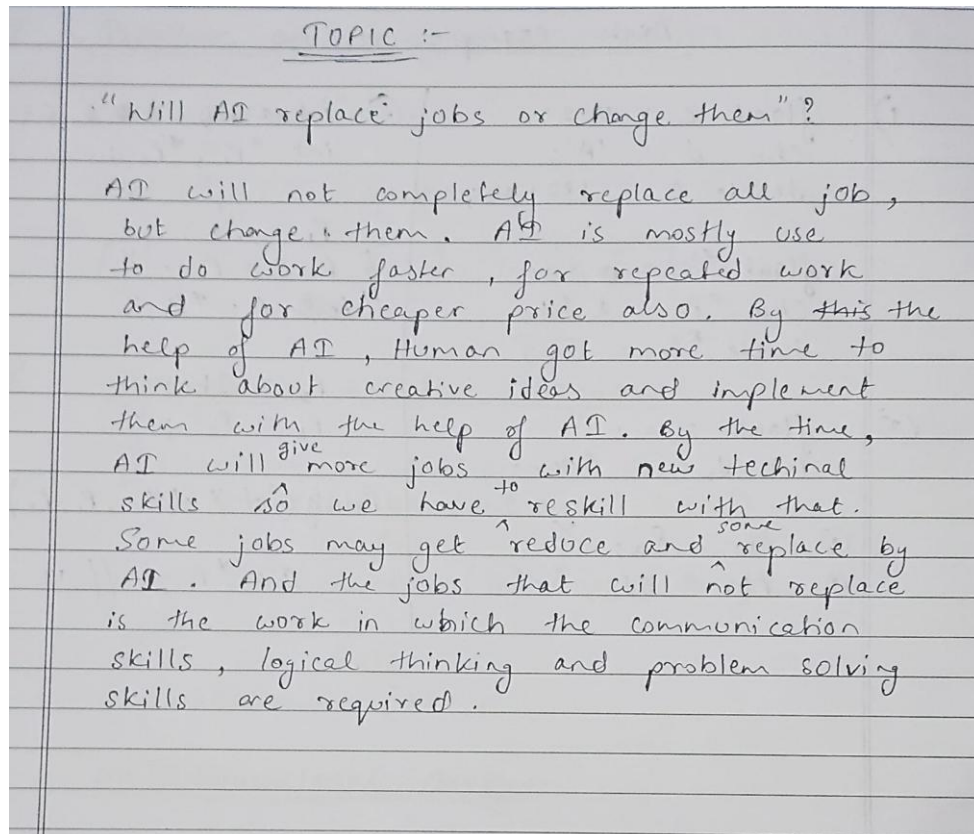 TOPIC :-
"Will AI replace jobs or change them"?
AI will not completely replace all job,
but change them. AI is mostly use
to do work faster, for repeated work
and for cheaper price also. By this the
help of AI, Human got more time to
think about creative ideas and implement
them with the help of AI. By the time,
AI will give more jobs with new techinal
skills so we have to reskill with that.
Some jobs may get reduce and some replace by
AI. And the jobs that will not replace
is the work in which the communication
skills, logical thinking and problem solving
skills are required.